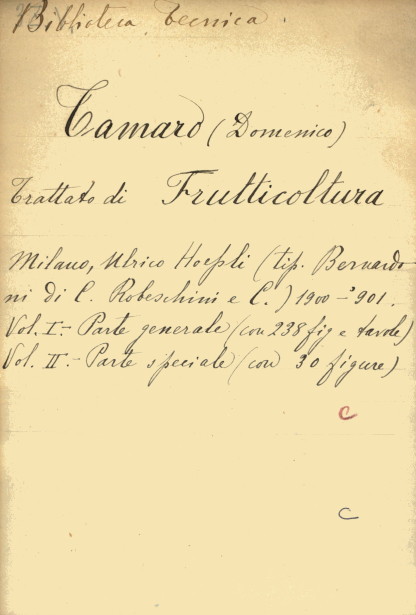 Biblioteca Tecnica.
Tamaro (Domenico)
Trattato di Frutticoltura
Milano, Ulrico Hoepli (tip. Bernardo
ni di C. Rebeschini e C.) 1900-'901.
Vol. I.- Parte generale (con 238 fig e tavole)
Vol. II.- Parte speciale (con 30 figure)
C
C